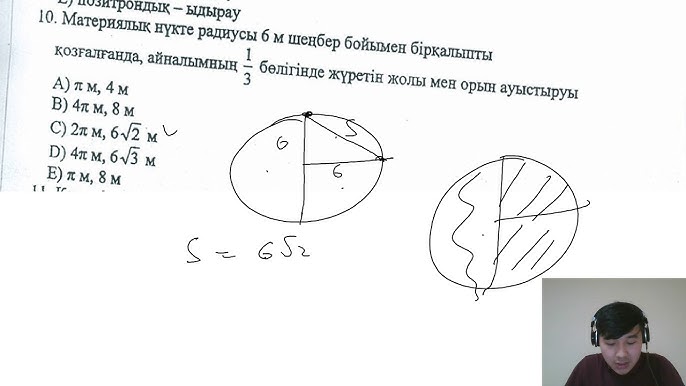 E) позитрондық – ыдырау
10. Материялық нүкте радиусы 6 м шеңбер бойымен бірқалыпты
қозғалғанда, айналымның 1/3 бөлігінде жүретін жолы мен орын ауыстыруы
A) π м, 4 м
B) 4π м, 8 м
C) 2π м, 6√2 м
D) 4π м, 6√3 м
E) π м, 8 м
6 S
6
S = 6√2